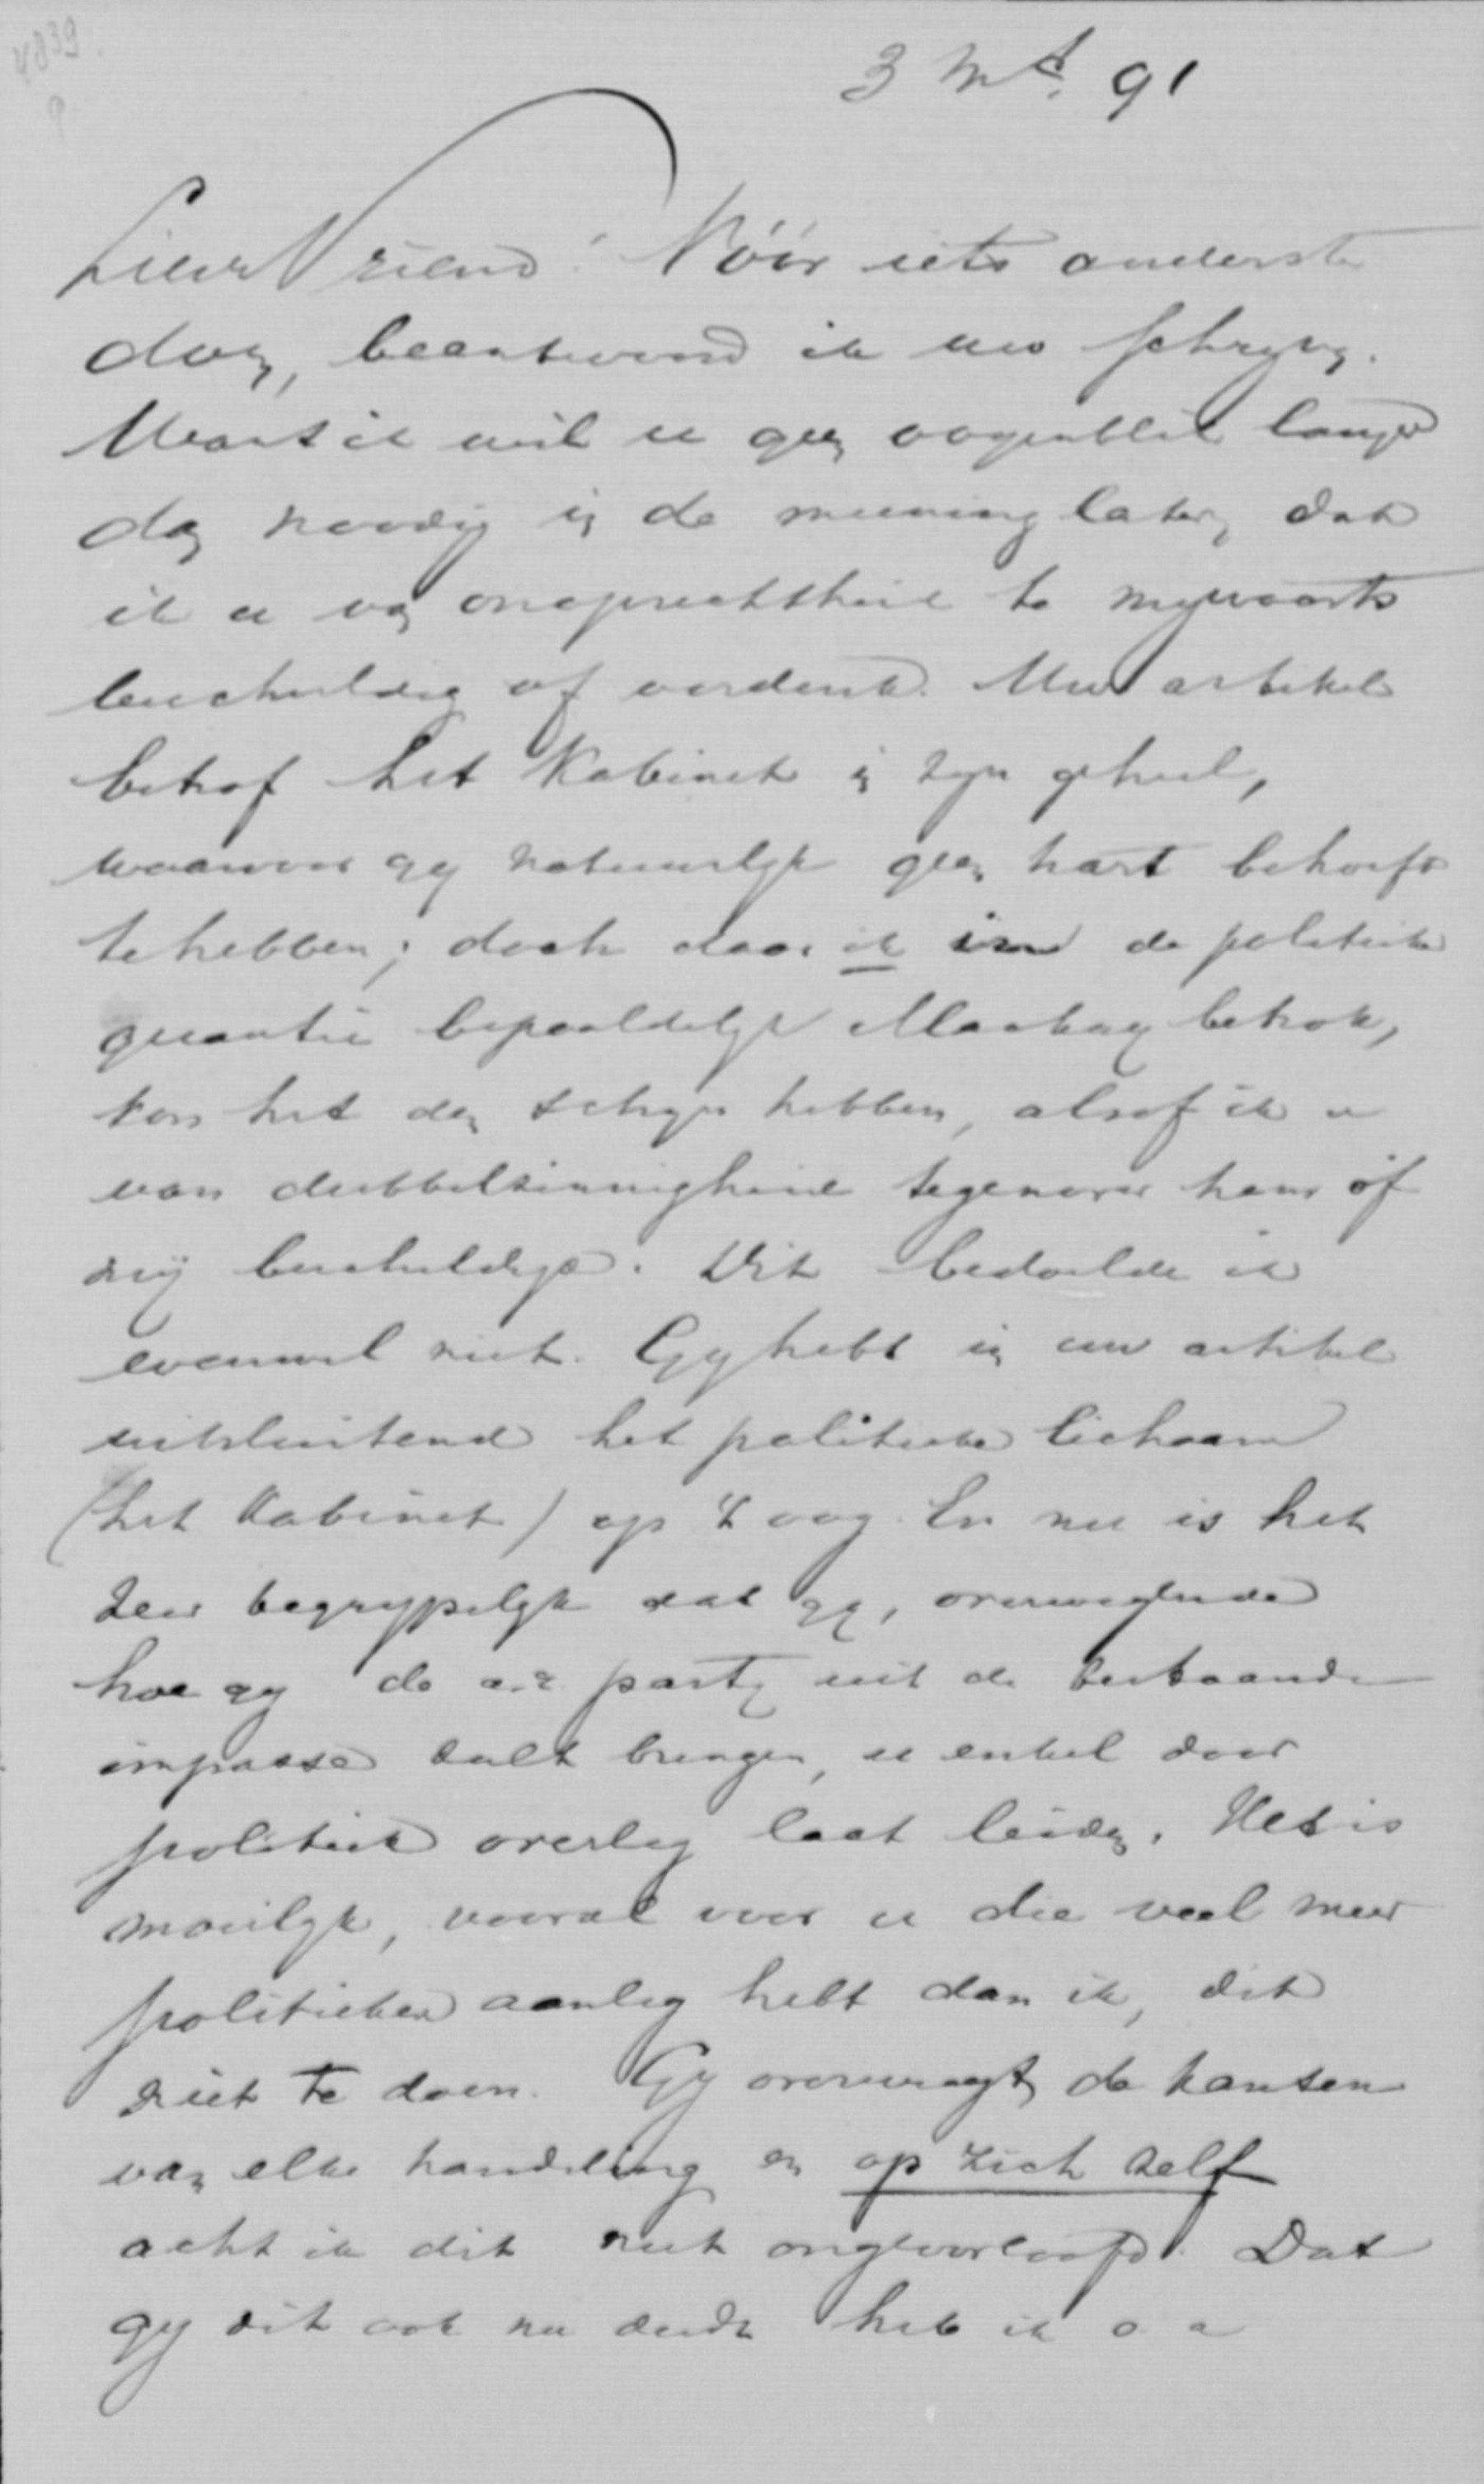 4839
3 Mrt. 91
Lieve Vriend! Vóór iets anders te
doen, beantwoord ik uw schrijven.
Want ik wil u geen oogenblik langer
dan noodig in de meening laten, dat
ik u van onoprechtheid te mijwaarts
beschuldig of verdenk. Uw artikel
betrof het Kabinet in zijn geheel,
waarvoor gij natuurlijk geen hart behoeft
te hebben; doch daar ik in de politieke
quaestie bepaaldelijk Mackay betrok,
kon het den schijn hebben, alsof ik u
van dubbelzinnigheid tegenover hem of
mij beschuldigde. Dit bedoelde ik
evenwel niet. Gij hebt in uw artikel
uitsluitend het politieke lichaam
(het Kabinet) op 't oog. En nu is het
zeer begrijpelijk dat gij, overwegende
hoe gij de a.r. partij uit de bestaande
impasse zult brengen, u enkel door
politiek overleg laat leiden. Het is
moeilijk, vooral voor u die veel meer
politieken aanleg hebt dan ik, dit
niet te doen. Gij overweegt de kansen
van elke handeling en op zich zelf
acht ik dit niet ongeoorloofd. Dat
gij dit ook nu deedt heb ik